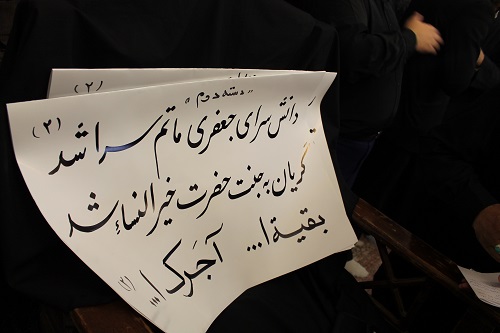 (۲)
"دسته دوم"
(۳) دانش سرای جعفری ماتم سرا شد
گریان به جنت حضرت خیر النساء شد
بقیة ا... آجرک ا... (۲)